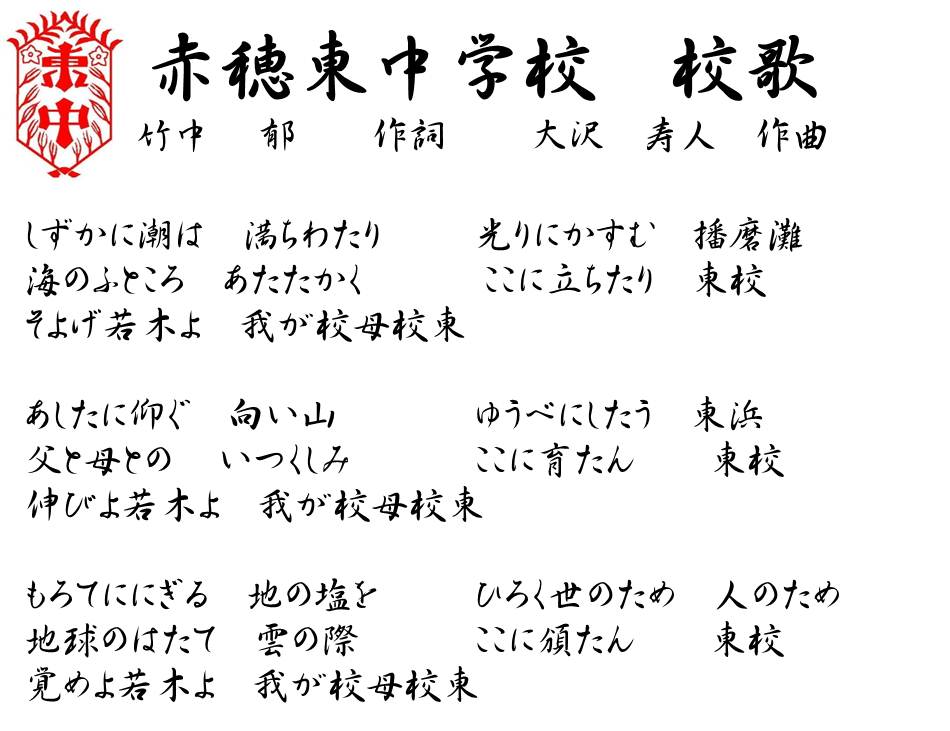 東中
赤穂東中学校　校歌
竹中　郁　　作詞　　大沢　寿人　作曲
しずかに潮は　満ちわたり　　光りにかすむ　播磨灘
海のふところ　あたたかく　　ここに立ちたり　東校
そよげ若木よ　我が校母校東
あしたに仰ぐ　向い山　　ゆうべにしたう　東浜
父と母との　いつくしみ　　ここに育たん　東校
伸びよ若木よ　我が校母校東
もろてににぎる　地の塩を　　ひろく世のため　人のため
地球のはたて　雲の際　　ここに頒たん　東校
覚めよ若木よ　我が校母校東